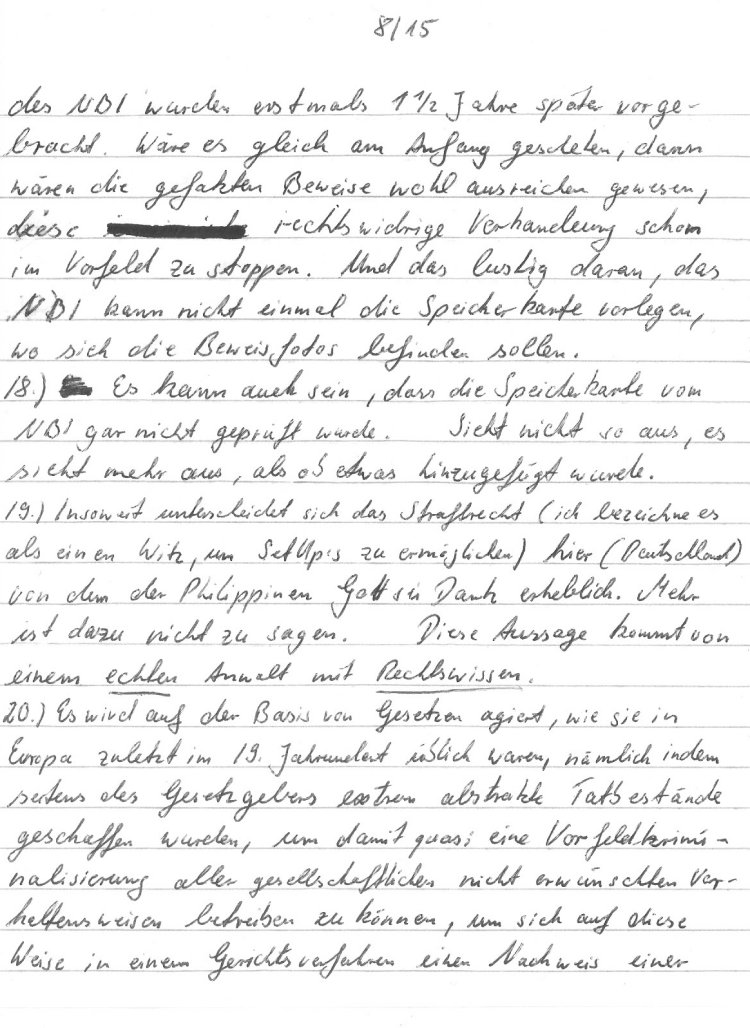 8/15
des NBI wurden erstmals 1 1/2 Jahre später vorge-
bracht. Wäre es gleich am Anfang geschehen, dann
wären die gefakten Beweise wohl ausreichen gewesen,
diese rechtswidrige Verhandlung schon
im Vorfeld zu stoppen. Und das lustig daran, das
NBI kann nicht einmal die Speicherkarte vorlegen,
wo sich die Beweisfotos befinden sollen.
18.) Es kann auch sein, dass die Speicherkarte vom
NBI gar nicht geprüft wurde. Sieht nicht so aus, es
sieht mehr aus, als ob etwas hinzugefügt wurde.
19.) Insoweit unterscheidet sich das Strafrecht (ich bezeichne es
als einen Witz, um SetUp's zu ermöglichen) hier (Deutschland)
von dem der Philippinen Gott sei Dank erheblich. Mehr
ist dazu nicht zu sagen. Diese Aussage kommt von
einem echten Anwalt mit Rechtswissen.
20.) Es wird auf der Basis von Gesetzen agiert, wie sie in
Europa zuletzt im 19. Jahrhundert üblich waren, nämlich indem
seitens des Gesetzgebers extrem abstrakte Tatbestände
geschaffen wurden, um damit quasi eine Vorfeldkrimi-
nalisierung aller gesellschaftlichen nicht erwünschten Ver-
haltensweisen betreiben zu können, um sich auf diese
Weise in einem Gerichtsverfahren einen Nachweis einer